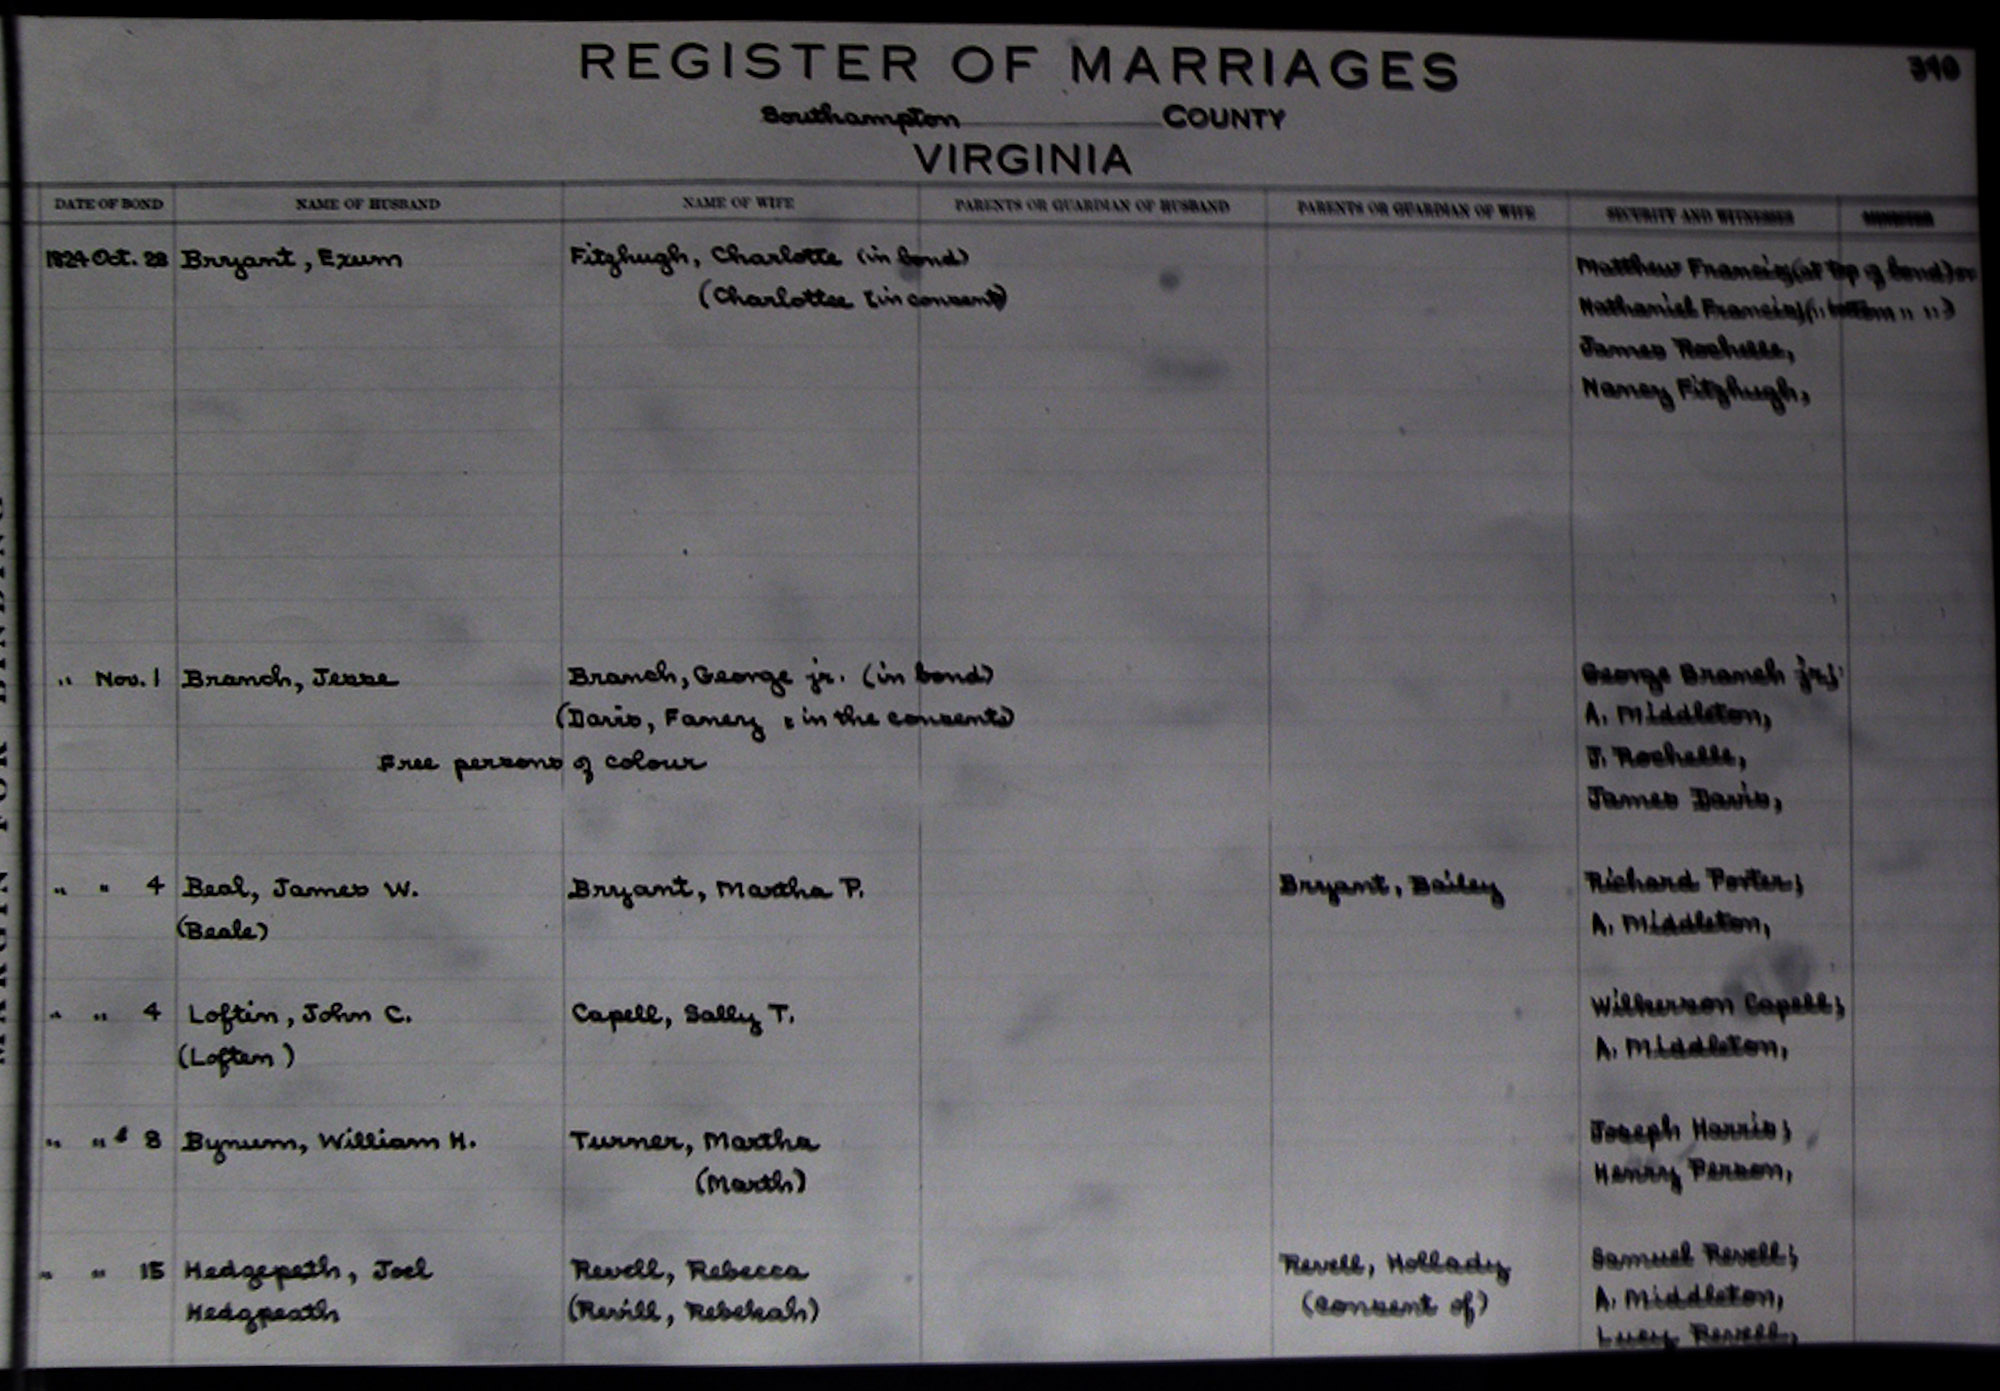 REGISTER OF MARRIAGES 310
Southampton COUNTY
VIRGINIA
DATE OF BOND NAME OF HUSBAND NAME OF WIFE PARENTS OR GUARDIAN OF HUSBAND PARENTS OR GUARDIAN OF WIFE SECURITY AND WITNESSES MINISTER
1824 Oct. 28 Bryant, Exum Fitzhugh, Charlotte (in bond) Matthew Francis (at top of bond) or
(Charlottee (in consent) Nathaniel Francis (" bottom " ")
James Rochelle,
Nancy Fitzhugh,
" Nov. 1 Branch, Jesse Branch, George jr. (in bond) George Branch jr;
(Davis, Fanny : in the consent) A. Middleton,
Free persons of colour J. Rochelle,
James Davis,
" " 4 Beal, James W. Bryant, Martha P. Bryant, Bailey Richard Porter;
(Beale) A. Middleton,
" " 4 Loftin, John C. Capell, Sally T. Wilkerson Capell;
(Loften) A. Middleton,
" " 8 Bynum, William H. Turner, Martha Joseph Harris;
(Marth) Henry Person,
" " 15 Hedgepeth, Joel Revell, Rebecca Revell, Hollady Samuel Revell;
Hedgpeath (Revill, Rebekah) (consent of) A. Middleton,
Lucy Revell,
MARGIN FOR BINDING